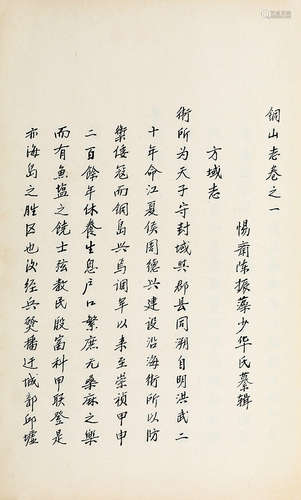 銅山志卷之一
惕園陈振藻少华氏纂辑
方域志
衛所为天子守封域與郡县同溯自明洪武二
十年命江夏侯周德兴建設沿海衛所以防
禦倭寇而銅島兴焉调军以来至崇祯甲申
二百餘年休養生息户口繁庶无桑麻之樂
而有魚塩之饶士弦教民殷富科甲联登是
亦海島之胜区也次经兵燹播迁城郭邱墟